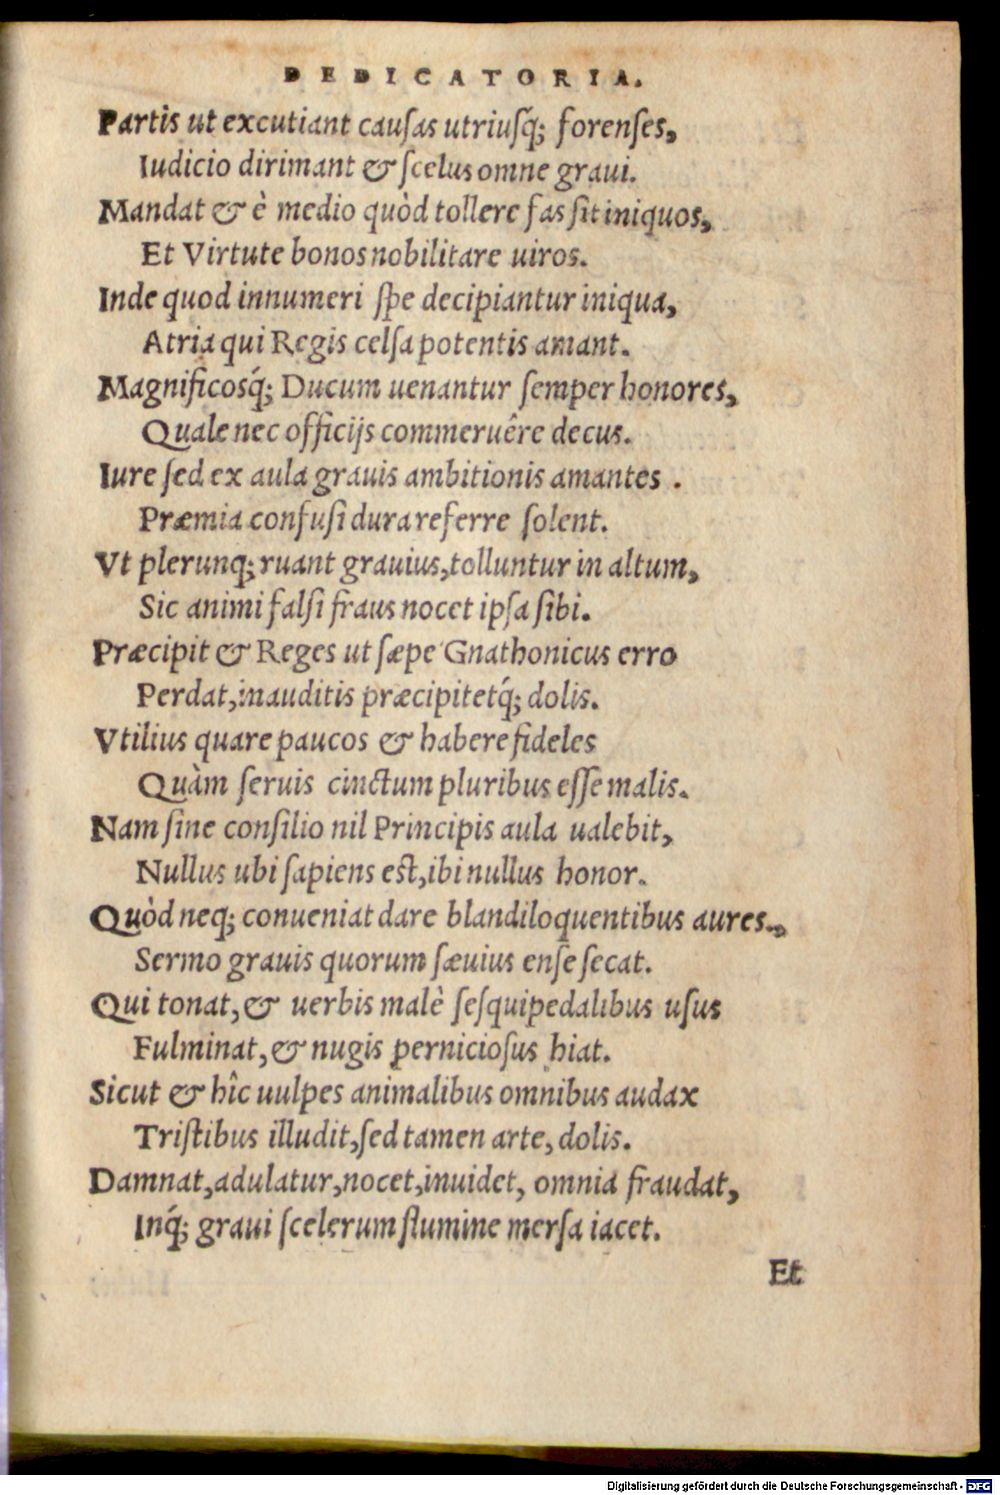 DEDICATORIA.
Partis ut excutiant cauſas utriuſq́; forenſes,
Iudicio dirimant & ſcelus omne graui.
Mandat & è medio quòd tollere fas ſit iniquos,
Et Virtute bonos nobilitare uiros.
Inde quod innumeri ſpe decipiantur iniqua,
Atria qui Regis celſa potentis amant.
Magnificosq́; Ducum uenantur ſemper honores,
Quale nec officijs commeruêre decus.
Iure ſed ex aula grauis ambitionis amantes .
Præmia confuſi dura referre ſolent.
Vt plerunq; ruant grauius, tolluntur in altum,
Sic animi falſi fraus nocet ipſa ſibi.
Præcipit & Reges ut ſæpe Gnathonicus erro
Perdat, inauditis præcipitetq́; dolis.
Vtilius quare paucos & habere fideles
Quàm ſeruis cinctum pluribus eſſe malis.
Nam ſine conſilio nil Principis aula ualebit,
Nullus ubi ſapiens eſt, ibi nullus honor.
Quòd neq; conueniat dare blandiloquentibus aures.,
Sermo grauis quorum ſæuius enſe ſecat.
Qui tonat, & uerbis malè ſeſquipedalibus uſus
Fulminat, & nugis pernicioſus hiat.
Sicut & hîc uulpes animalibus omnibus audax
Triſtibus illudit, ſed tamen arte, dolis.
Damnat, adulatur, nocet, inuidet, omnia fraudat,
Inq́; graui ſcelerum flumine merſa iacet.
Et
Digitalisierung gefördert durch die Deutsche Forschungsgemeinschaft - DFG